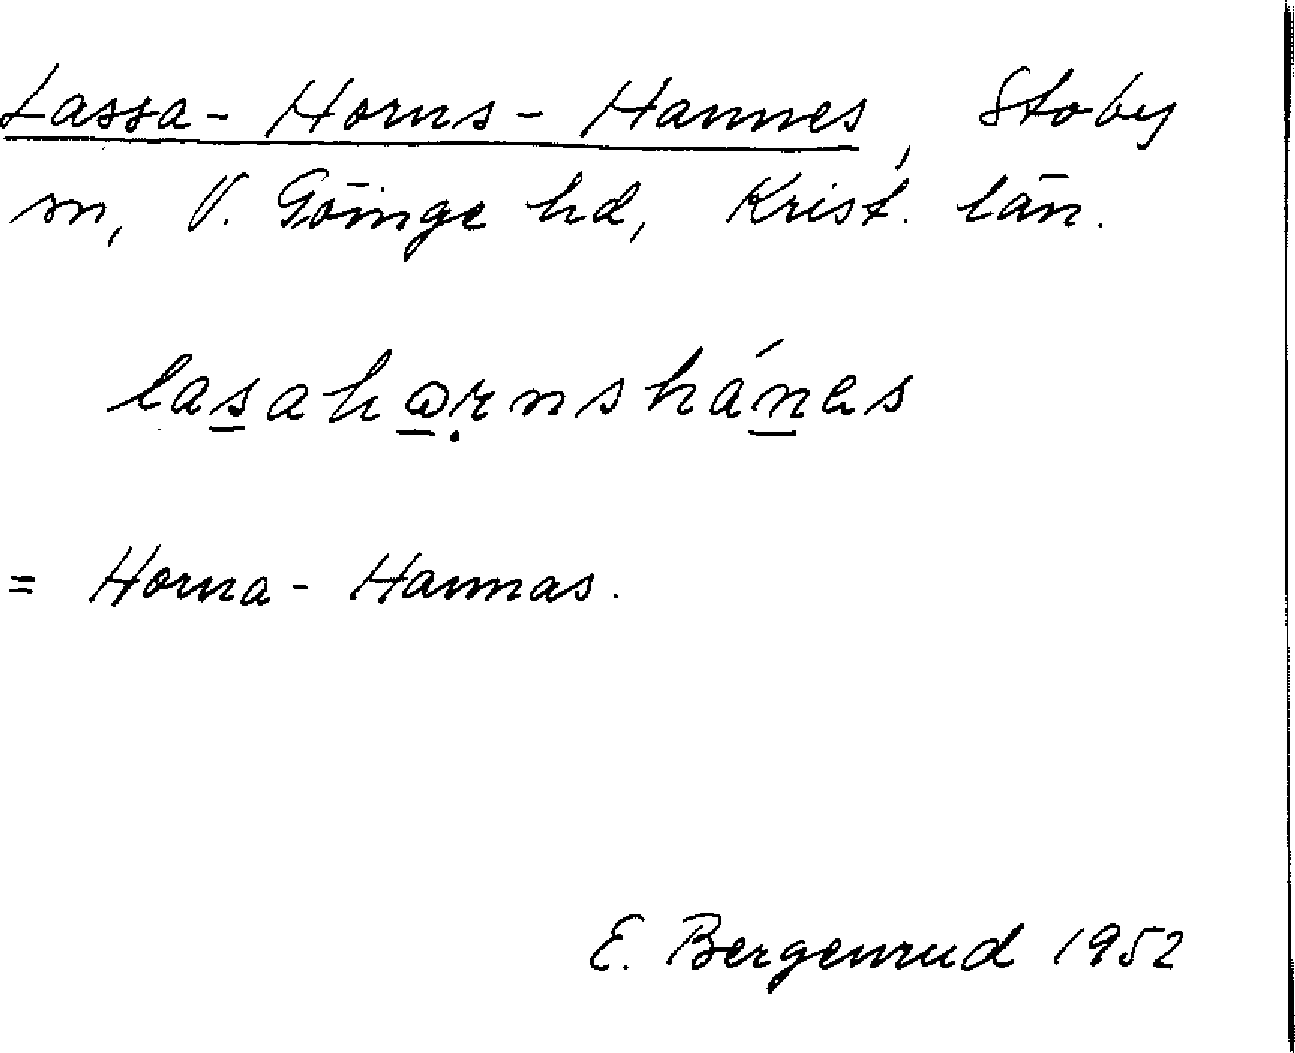 Lassa-Horns-Hannes, Stoby
sn, V. Göinge hd, Krist. län.
lasahɷrnshánes
= Horna-Hannas.
E. Bergenrud 1952